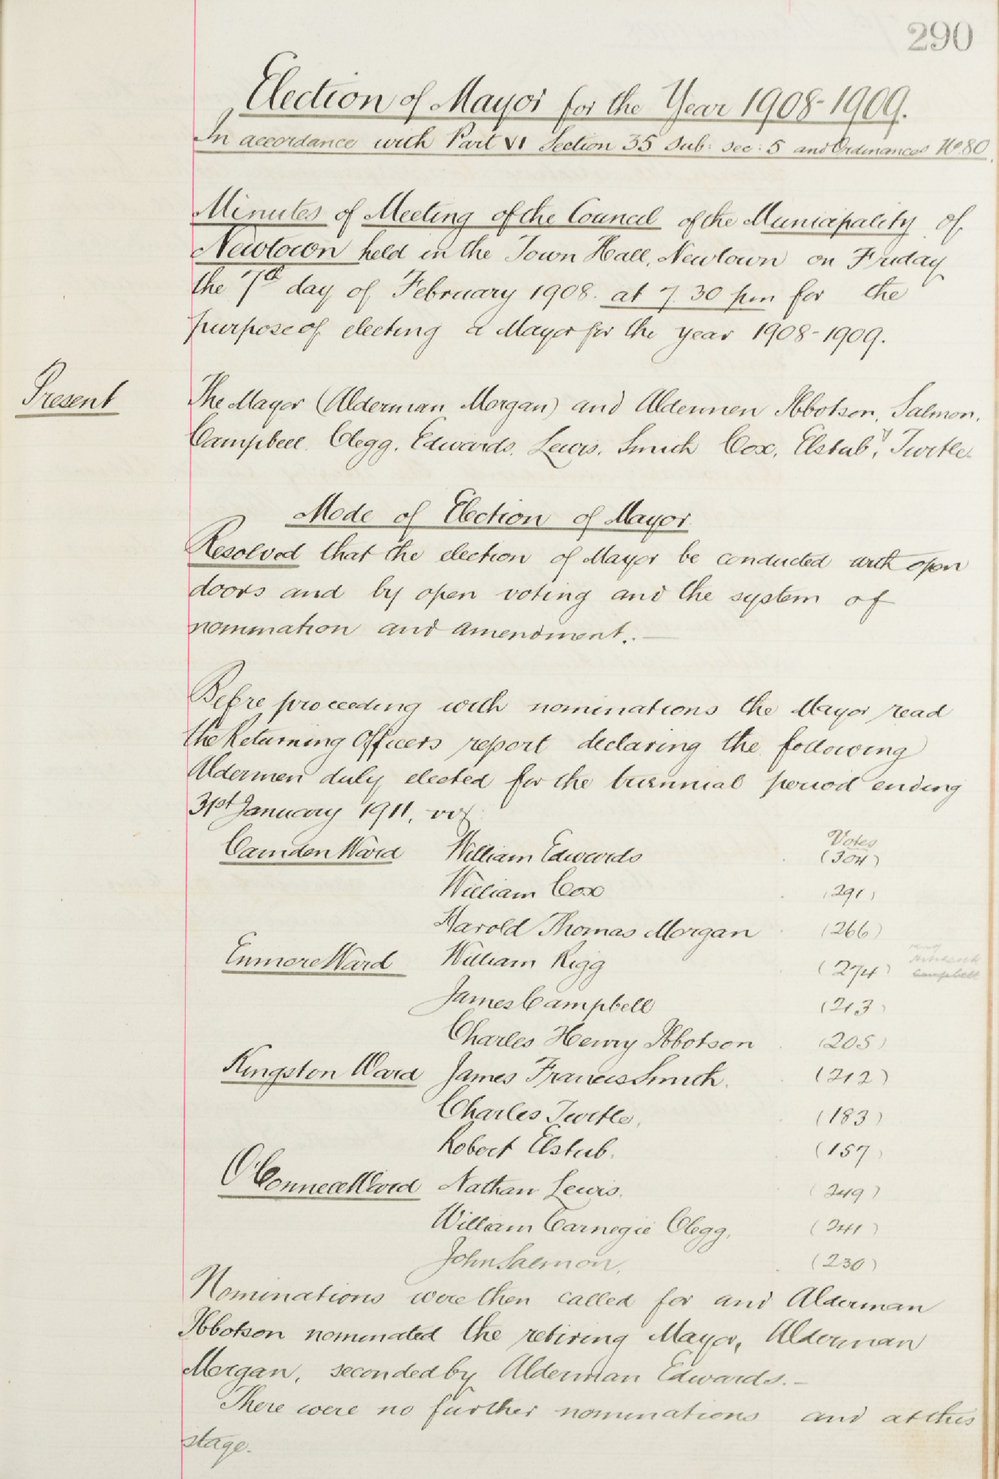 290
Election of Mayor for the Year 1908-1909.
In accordance with Part VI Section 35 Sub: sec: 5 and Ordinances No. 80.
Minutes of Meeting of the Council of the Municipality of
Newtown held in the Town Hall, Newtown on Friday
the 7th day of February 1908. at 7.30 pm for the
purpose of electing a Mayor for the year 1908-1909.
Present
The Mayor (Alderman Morgan) and Aldermen Ibbotson, Salmon,
Campbell, Clegg, Edwards, Lewis, Smith Cox, Elstub, Turtle.
Mode of Election of Mayor
Resolved that the election of Mayor be conducted with open
doors and by open voting and the system of
nomination and amendment.—
Before proceeding with nominations the Mayor read
the Returning Officers report declaring the following
Aldermen duly elected for the triennial period ending
31st January 1911, viz
Votes
Camden Ward William Edwards (304)
William Cox (291)
Harold Thomas Morgan (266)
Enmore Ward William Rigg (274)
Campbell
James Campbell (213)
Charles Henry Ibbotson (205)
Kingston Ward James Francis Smith. (212)
Charles Turtle, (183)
Robert Elstub. (157)
O'Connell Ward Nathan Lewis. (249)
William Carnegie Clegg, (241)
John Salmon. (230)
Nominations were then called for and Alderman
Ibbotson nominated the retiring Mayor, Alderman
Morgan, seconded by Alderman Edwards.—
There were no further nominations and at this
stage.